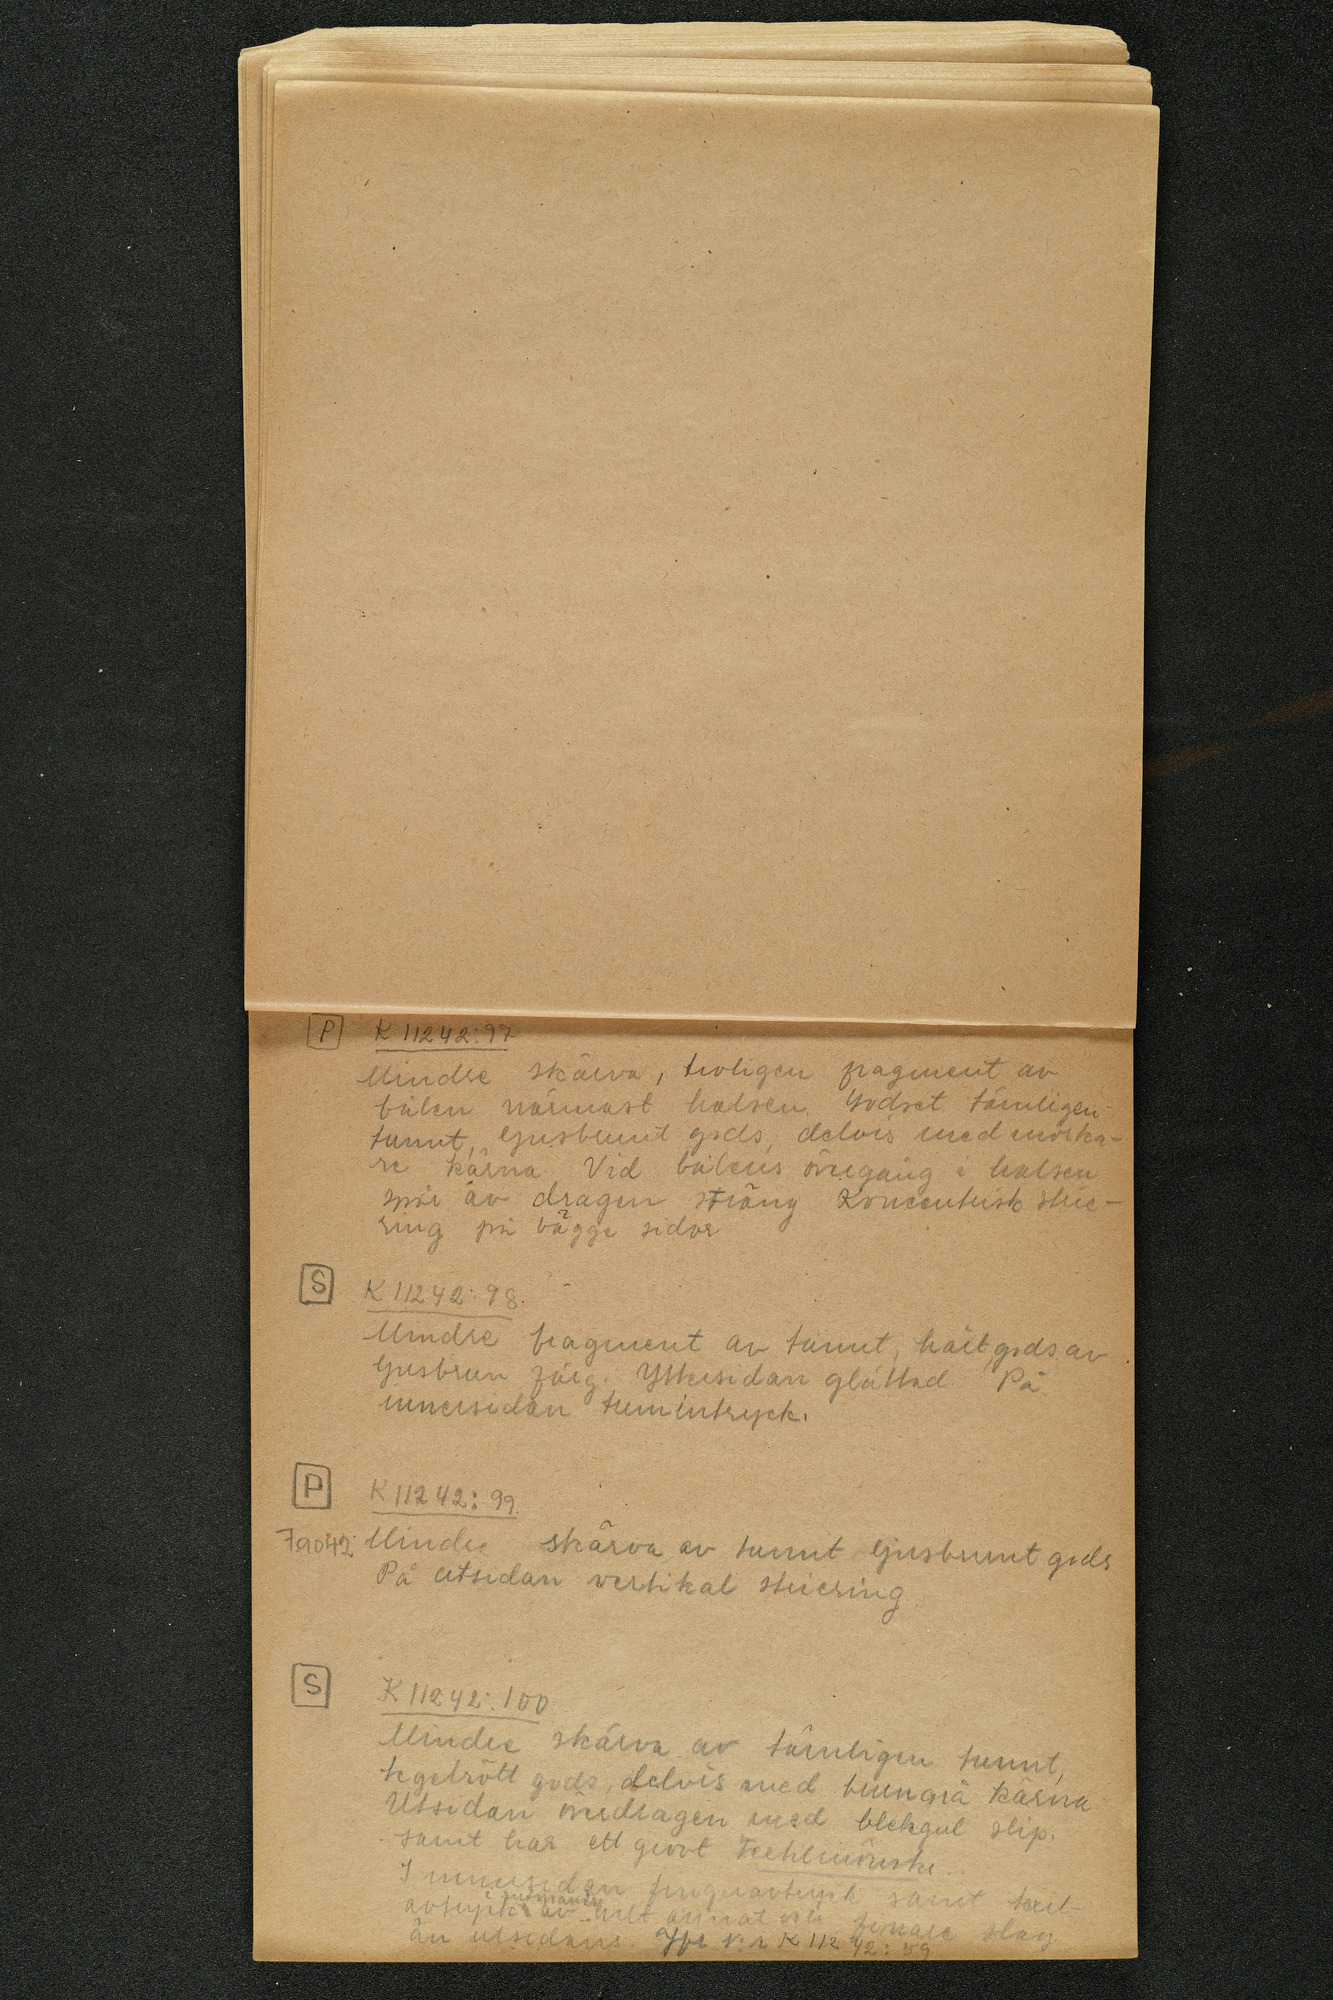 P K 11242:97
Mindre skärva, troligen fragment av
bålen närmast halsen. Godset tämligen
tunnt, ljusbrunt gods, delvis med mörka-
re kärna. Vid bålens övergång i halsen
spår av dragen sträng Koncentrisk strie-
ring på bägge sidor
S K 11242:98.
Mindre fragment av tunnt, hårt gods av
ljusbrun färg. Ytttersidan glättad På
innersidan tumintryck.
P K 11242:99.
79042 Mindre skärva av tunnt ljusbrunt gods
På utsidan vertikal striering
S K 11242:100
Mindre skärva av tämligen tunnt,
tegelrött gods, delvis med brungrå kärna
Utsidan överdragen med blekgul slip.
samt har ett grovt
I innersidan fingeravtryck samt textil-
avtryck av helt annat och finare slag
än utsidans. Jfr K 11242:59